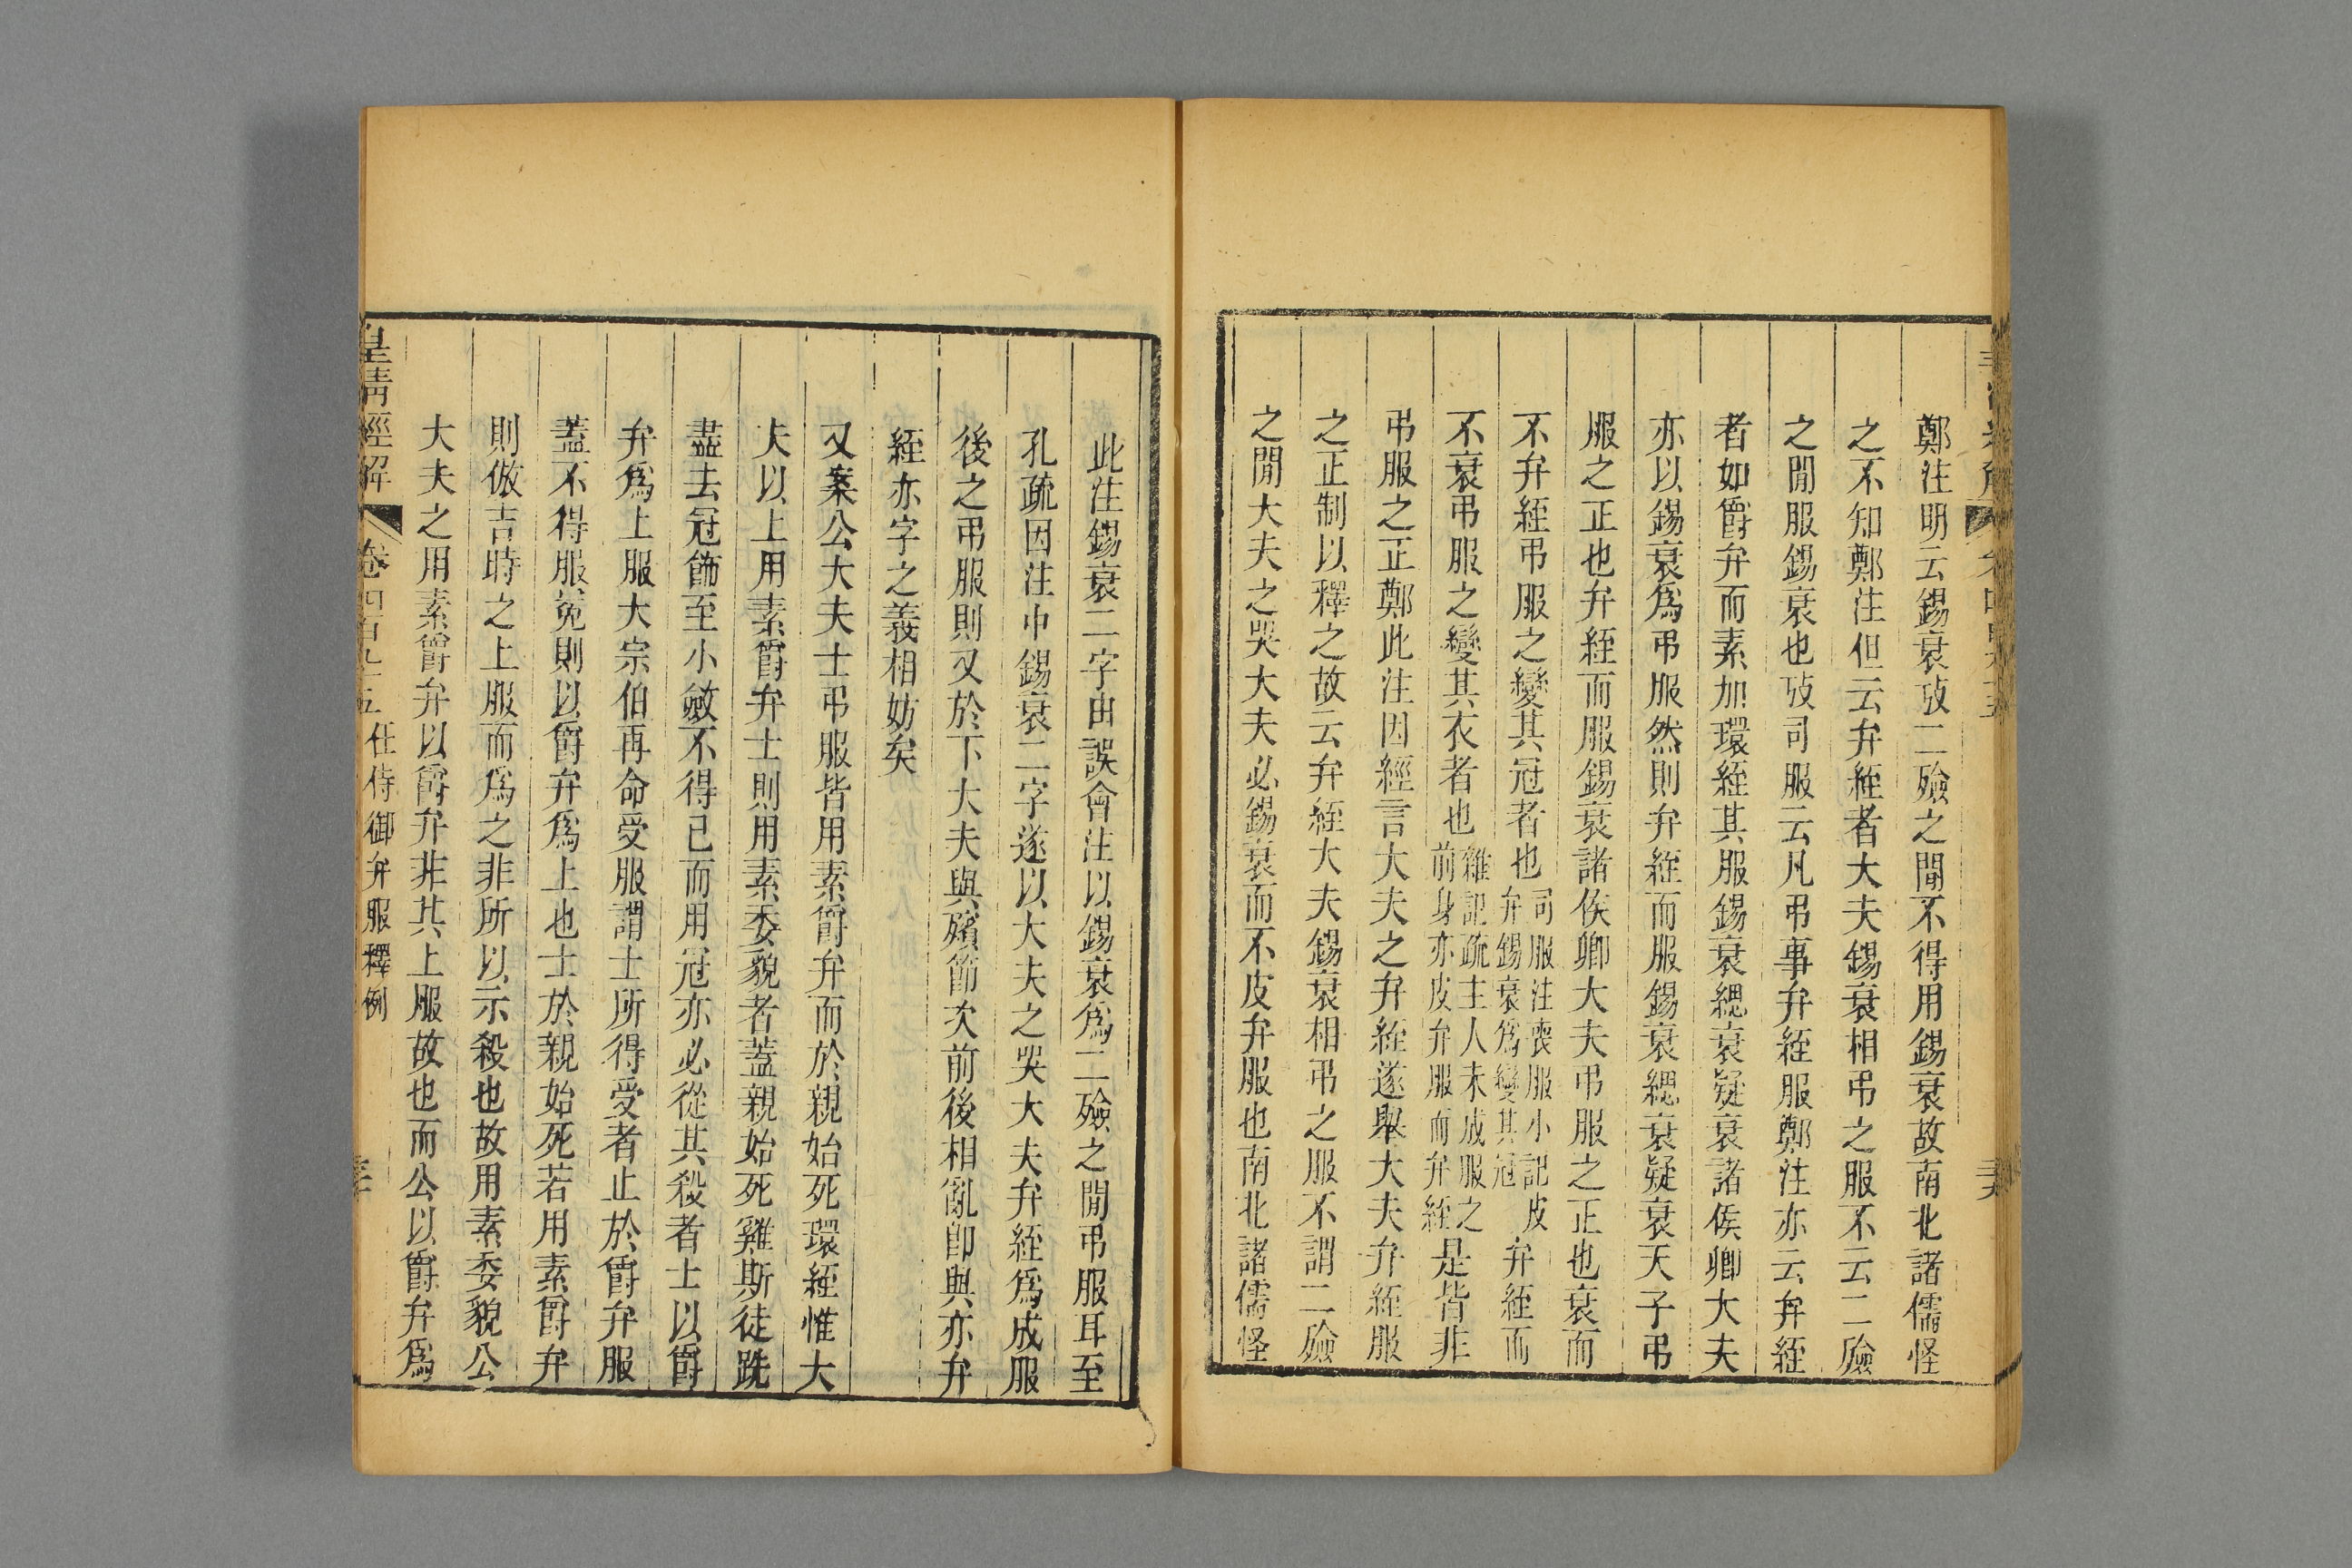 鄭注明云錫衰攷二殮之閒不得用錫衰故南北諸儒怪
之不知鄭注但云弁絰者大夫錫衰相弔之服不云二殮
之閒服錫衰也攷司服云凡弔事弁絰服鄭注亦云弁絰
者如爵弁而素加環絰其服錫衰緦衰疑衰諸侯卿大夫
亦以錫衰爲弔服然則弁絰而服錫衰緦衰疑衰天子弔
服之正也弁絰而服錫衰諸侯卿大夫弔服之正也衰而
不弁絰弔服之變其冠者也司服注喪服小記皮弁錫衰爲變其冠弁絰而
不衰弔服之變其衣者也雜記疏主人未成服之前身亦皮弁服而弁絰是皆非
弔服之正鄭此注因經言大夫之弁絰遂舉大夫弁絰服
之正制以釋之故云弁絰大夫錫衰相弔之服不謂二殮
之閒大夫之哭大夫必錫衰而不皮弁服也南北諸儒怪
此注錫衰二字由誤會注以錫衰爲二殮之閒弔服耳至
孔疏因注中錫衰二字遂以大夫之哭大夫弁絰爲成服
後之弔服則又於下大夫與殯節次前後相亂卽與亦弁
絰亦字之義相妨矣
又案公大夫士弔服皆用素爵弁而於親始死環絰惟大
夫以上用素爵弁士則用素委貌者蓋親始死雞斯徒跣
盡去冠飾至小斂不得已而用冠亦必從其殺者士以爵
弁爲上服大宗伯再命受服謂士所得受者止於爵弁服
蓋不得服冕則以爵弁爲上也士於親始死若用素爵弁
則倣吉時之上服而爲之非所以示殺也故用素委貌公
大夫之用素爵弁以爵弁非其上服故也而公以爵弁爲
皇清經解
卷四百九十五
任侍御弁服釋例